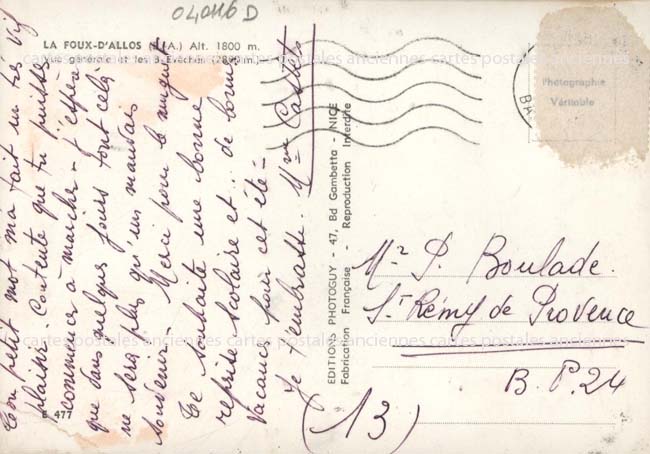 040116 D
LA FOUX-D'ALLOS (B.-A.) Alt. 1800 m.
Vue générale et les 3-Evêchés (2890 m.)
Ton petit mot m'a fait un très vif
plaisir - Contente que tu puisses
commencer à marcher - J'espère
que dans quelques jours tout cela
ne sera plus qu'un mauvais
souvenir - Merci pour le muguet
Te souhaite une bonne
reprise scolaire et de bonnes
vacances pour cet été -
Je t'embrasse. Mme
E 477
EDITIONS PHOTOGUY - 47, Bd Gambetta - NICE
Fabrication Française - Reproduction Interdite
Photographie
Véritable
Mr P. Boulade.
St Rémy de Provence
B. P. 24
(13)
cartes postales anciennes cartes postales anciennes cartes postales anciennes
cartes postales anciennes cartes postales anciennes cartes postales anciennes